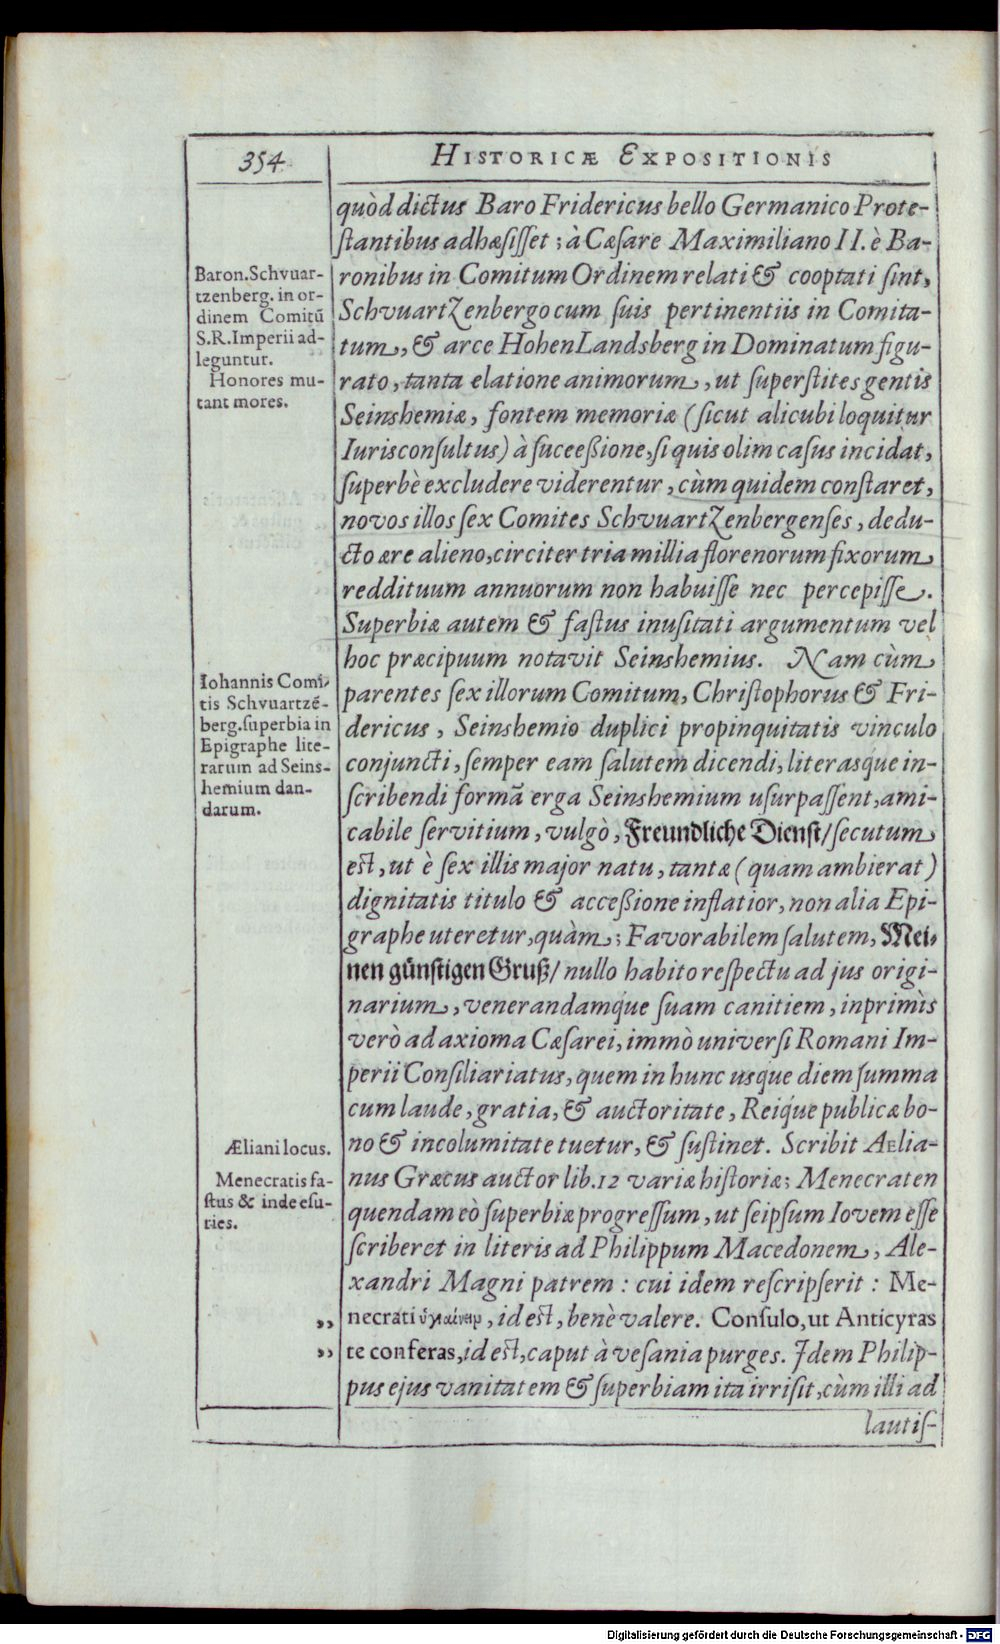 354
HISTORICÆ EXPOSITIONIS
quòd dictus Baro Fridericus bello Germanico Prote-
ſtantibus adhæſiſſet; à Cæſare Maximiliano II. è Ba-
ronibus in Comitum Ordinem relati & cooptati ſint,
Schvuartzenbergo cum ſuis pertinentiis in Comita-
tum, & arce HohenLandsberg in Dominatum figu-
rato, tanta elatione animorum, ut ſuperſtites gentis
Seinshemiæ, fontem memoriæ (ſicut alicubi loquitur
Iurisconſultus) à ſuceeßione, ſi quis olim caſus incidat,
ſuperbè excludere viderentur, cùm quidem conſtaret,
novos illos ſex Comites Schvuartzenbergenſes, dedu-
cto ære alieno, circiter tria millia florenorum fixorum
reddituum annuorum non habuiſſe nec percepiſſe.
Superbiæ autem & faſtus inuſitati argumentum vel
hoc præcipuum notavit Seinshemius. Nam cùm
parentes ſex illorum Comitum, Chriſtophorus & Fri-
dericus, Seinshemio duplici propinquitatis vinculo
conjuncti, ſemper eam ſalutem dicendi, literasq́ue in-
ſcribendi formã erga Seinshemium uſurpaſſent, ami-
cabile ſervitium, vulgò, Freundliche Dienſt/ ſecutum
eſt, ut è ſex illis major natu, tantæ (quam ambierat)
dignitatis titulo & acceßione inflatior, non alia Epi-
graphe uteretur, quàm; Favorabilem ſalutem, Mei-
nen günſtigen Gruß/ nullo habito reſpectu ad jus origi-
narium, venerandamq́ue ſuam canitiem, inprimìs
verò ad axioma Cæſarei, immò univerſi Romani Im-
perii Conſiliariatus, quem in hunc usque diem ſumma
cum laude, gratia, & auctoritate, Reiq́ue publicæ bo-
no & incolumitate tuetur, & ſuſtinet. Scribit Aelia-
nus Græcus auctor lib. 12 variæ hiſtoriæ; Menecraten
quendam eò ſuperbiæ progreſſum, ut ſeipſum Iovem eſſe
ſcriberet in literis ad Philippum Macedonem, Ale-
xandri Magni patrem: cui idem reſcripſerit: Me-
necrati ὑγιαίνειν, id eſt, benè valere. Conſulo, ut Anticyras
te conferas, id eſt, caput à veſania purges. Idem Philip-
pus ejus vanitatem & ſuperbiam ita irriſit, cùm illi ad
lautiſ-
Baron. Schvuar-
tzenberg. in or-
dinem Comitũ
S.R. Imperii ad-
leguntur.
Honores mu-
tant mores.
Iohannis Comi-
tis Schvuartzẽ-
berg. ſuperbia in
Epigraphe lite-
rarum ad Seins-
hemium dan-
darum.
Æliani locus.
Menecratis fa-
ſtus & inde eſu-
ries.
,,
,,
Digitalisierung gefördert durch die Deutsche Forschungsgemeinschaft - DFG